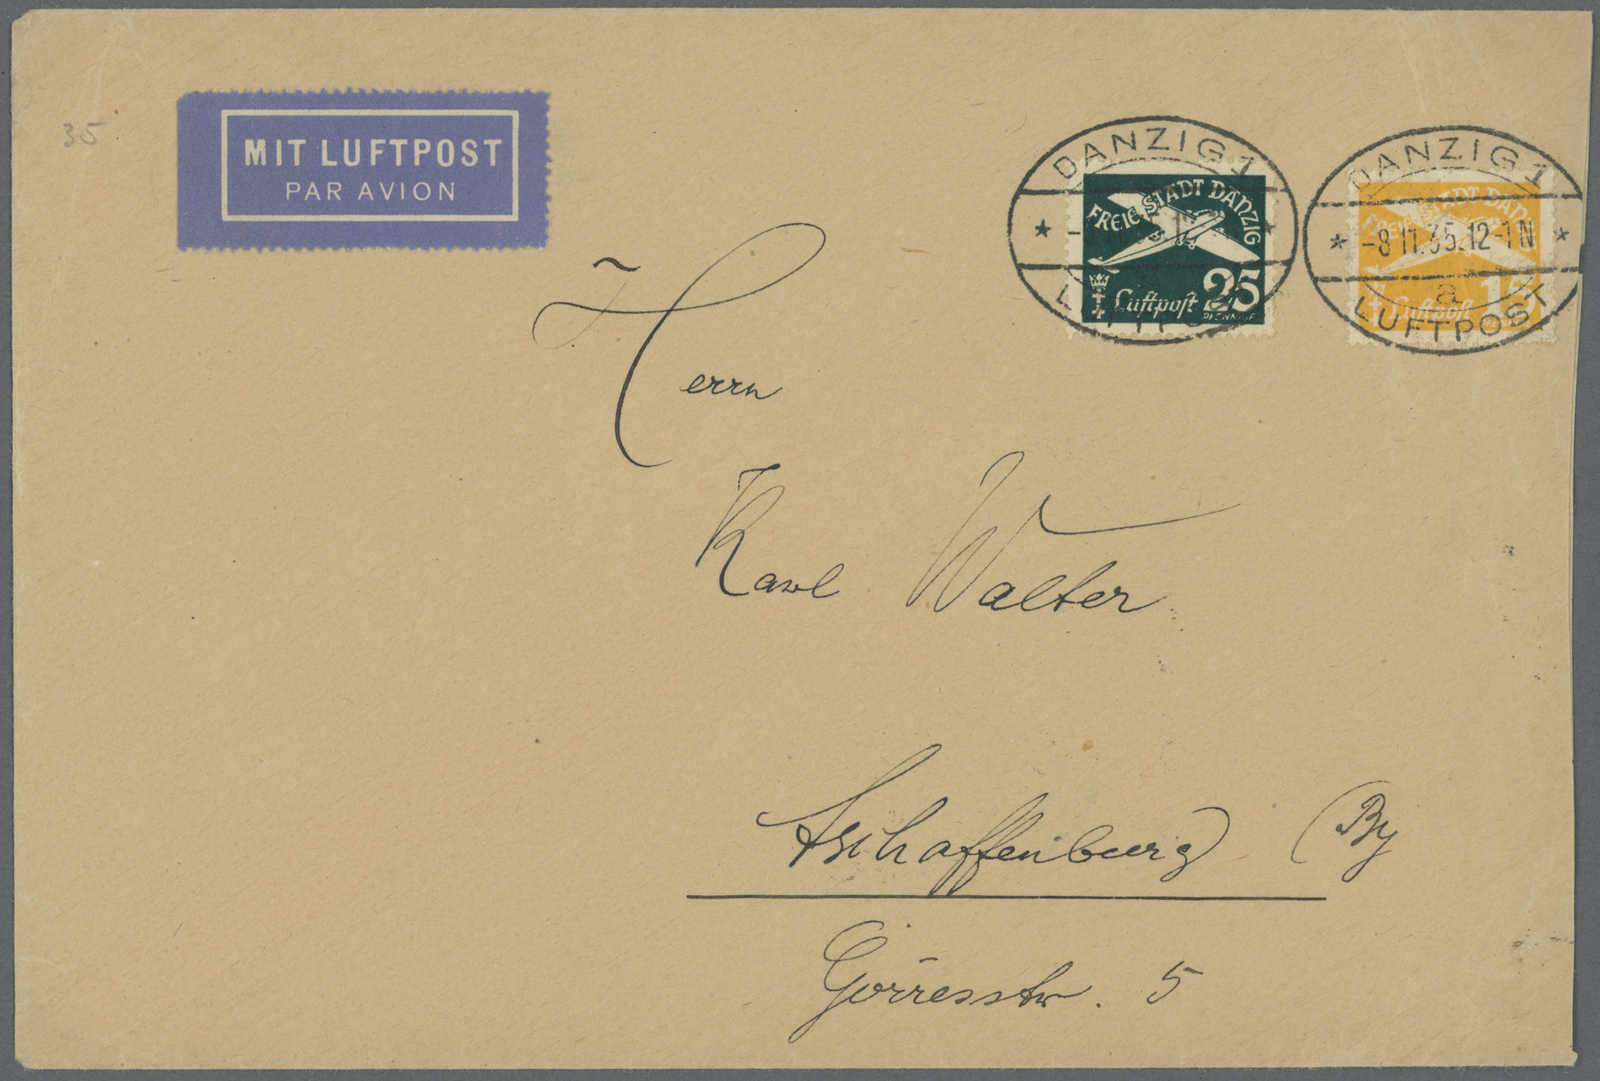 35
MIT LUFTPOST
PAR AVION
DANZIG 1
FREIE STADT DANZIG
Luftpost 25
PFENNIG
LUFTPOST
DANZIG 1
FREIE STADT DANZIG
-8.11.35.12-1N
a
Luftpost 15
LUFTPOST
Herrn
Karl Walter
Aschaffenburg (By
Görresstr. 5